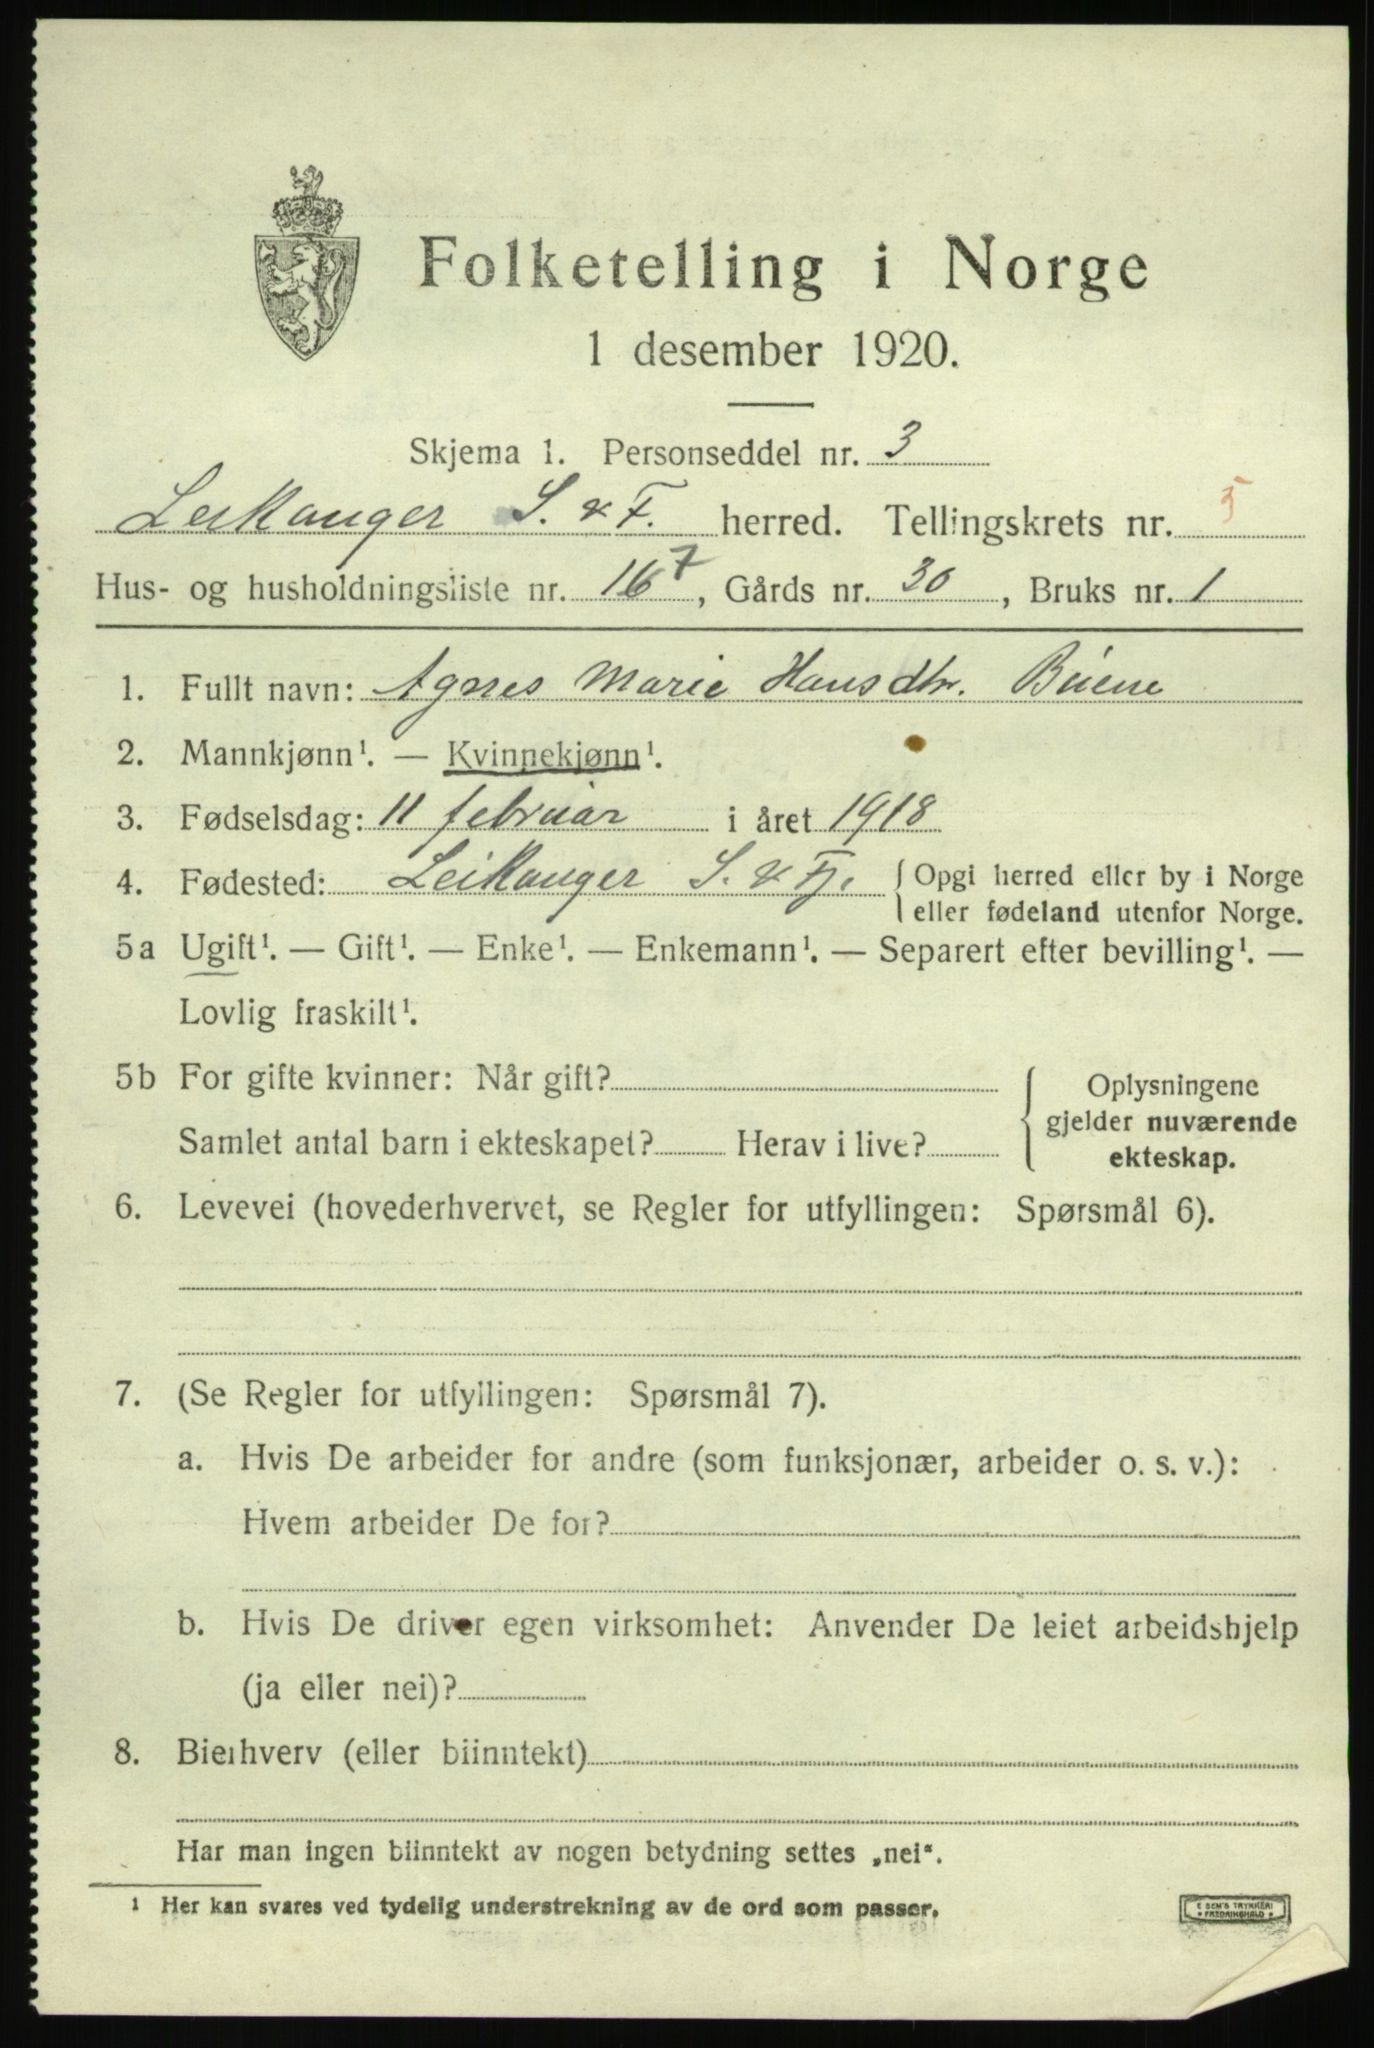 Folketelling i Norge
1 desember 1920.
Skjema 1. Personseddel nr. 3
Leikanger S. & F. herred. Tellingskrets nr. 5
Hus- og husholdningsliste nr. 16 7, Gårds nr. 30, Bruks nr. 1
1. Fullt navn: Agnes Marie Hansdtr.
2. Mannkjønn¹. — Kvinnekjønn¹.
3. Fødselsdag: 11 februar i året 1918
4. Fødested: Leikanger S. & Fj. { Opgi herred eller by i Norge
eller fødeland utenfor Norge.
5a Ugift¹. — Gift¹. — Enke¹. — Enkemann¹. — Separert efter bevilling¹. —
Lovlig fraskilt¹.
5b For gifte kvinner: Når gift?
Samlet antal barn i ekteskapet? Herav i live?
{ Oplysningene
gjelder nuværende
ekteskap.
6. Levevei (hovederhvervet, se Regler for utfyllingen: Spørsmål 6).
7. (Se Regler for utfyllingen: Spørsmål 7).
a. Hvis De arbeider for andre (som funksjonær, arbeider o. s. v.):
Hvem arbeider De for?
b. Hvis De driver egen virksomhet: Anvender De leiet arbeidshjelp
(ja eller nei)?
8. Bierhverv (eller biinntekt)
Har man ingen biinntekt av nogen betydning settes „nei“.
1 Her kan svares ved tydelig understrekning av de ord som passer.
TRYKKERI
FREDRIKSHALD